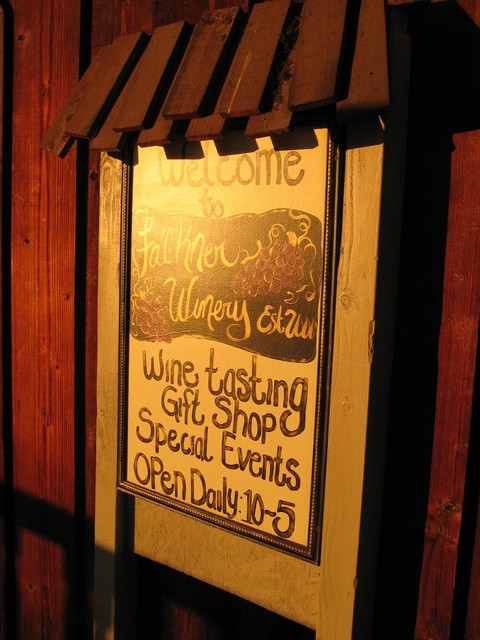 Welcome
to
Falkner
Winery Est. 2000
Wine tasting
Gift Shop
Special Events
Open Daily: 10-5